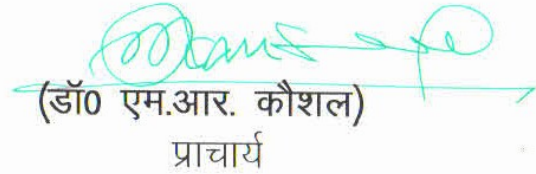 (डॉ0 एम.आर. कौशल)
प्राचार्य